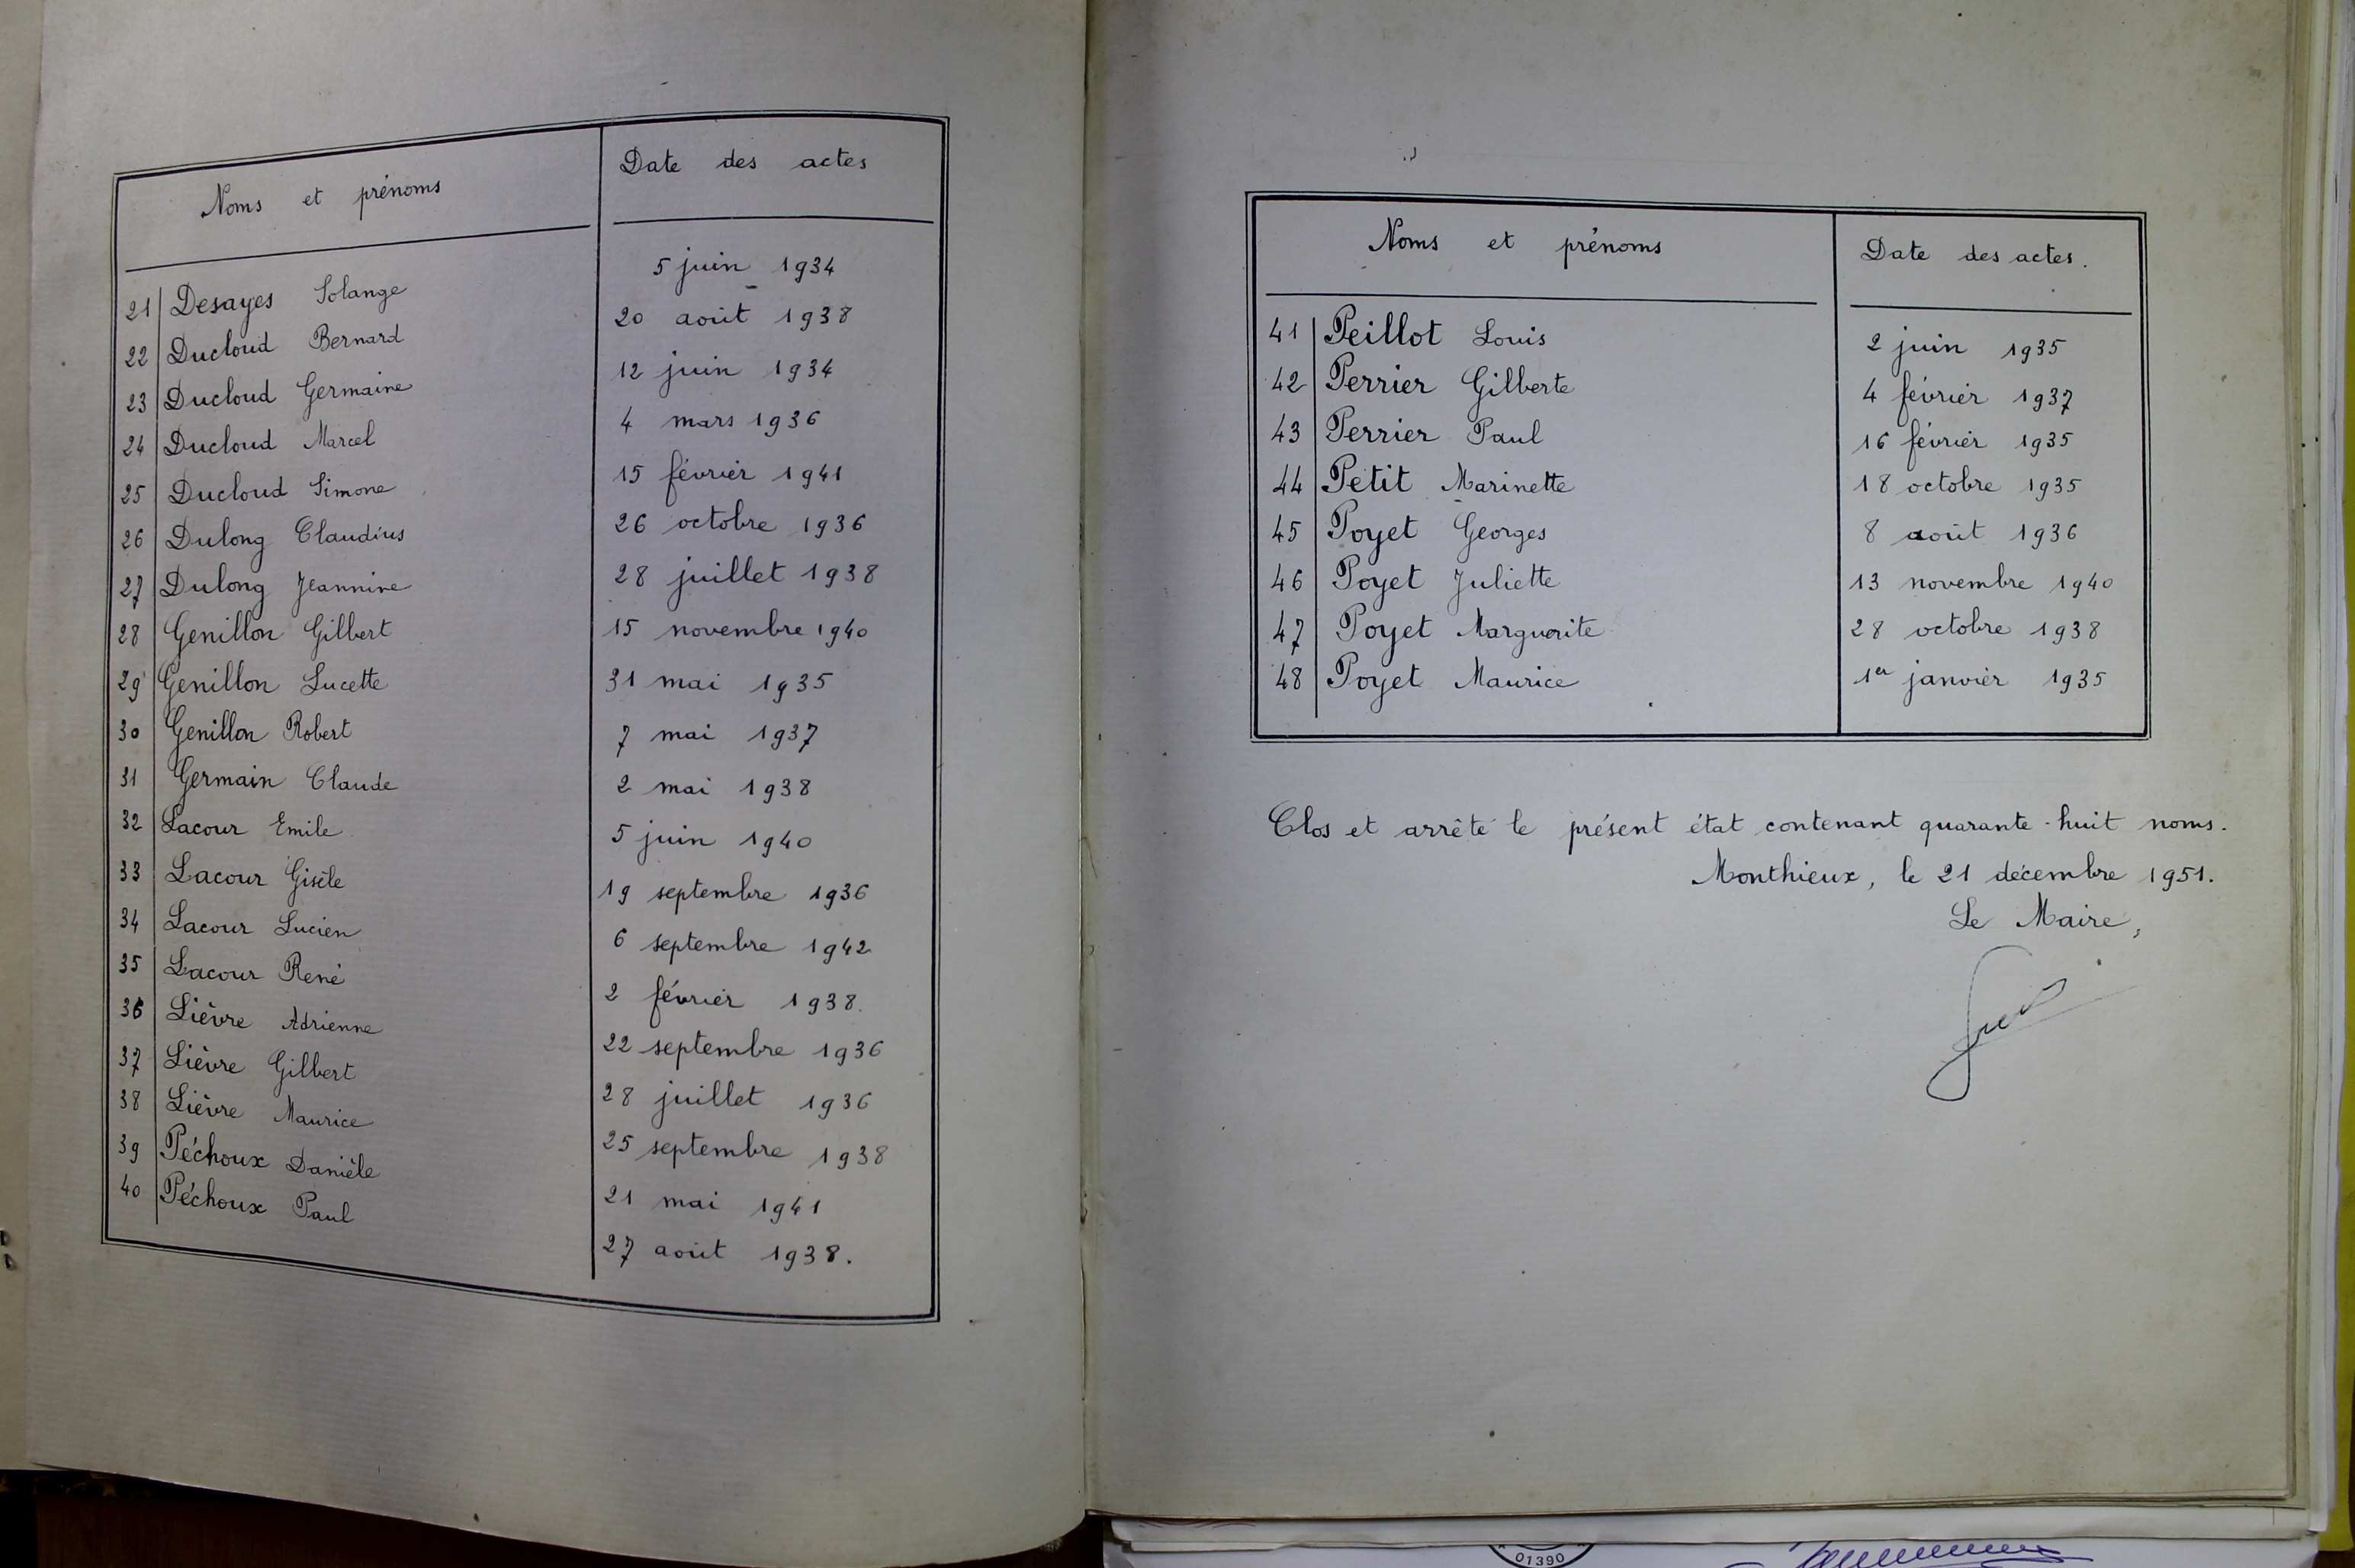 Noms et prénoms Date des actes
21 Desayes Solange 5 juin 1934
22 Ducloud Bernard 20 août 1938
23 Ducloud Germaine 12 juin 1934
24 Ducloud Marcel 4 mars 1936
25 Ducloud Simone 15 février 1941
26 Dulong Claudius 26 octobre 1936
27 Dulong Jeannine 28 juillet 1938
28 Genillon Gilbert 15 novembre 1940
29 Genillon Lucette 31 mai 1935
30 Genillon Robert 7 mai 1937
31 Germain Claude 2 mai 1938
32 Lacour Emile 5 juin 1940
33 Lacour Gisèle 19 septembre 1936
34 Lacour Lucien 6 septembre 1942
35 Lacour René 2 février 1938.
36 Lièvre Adrienne 22 septembre 1936
37 Lièvre Gilbert 28 juillet 1936
38 Lièvre Maurice 25 septembre 1938
39 Péchoux Danièle 21 mai 1941
40 Péchoux Paul 27 août 1938.
Noms et prénoms Date des actes.
41 Peillot Louis 2 juin 1935
42 Perrier Gilberte 4 février 1937
43 Perrier Paul 16 février 1935
44 Petit Marinette 18 octobre 1935
45 Poyet Georges 8 août 1936
46 Poyet Juliette 13 novembre 1940
47 Poyet Marguerite 28 octobre 1938
48 Poyet Maurice 1er janvier 1935
Clos et arrêté le présent état contenant quarante-huit noms.
Monthieux, le 21 décembre 1951.
Le Maire,
01390